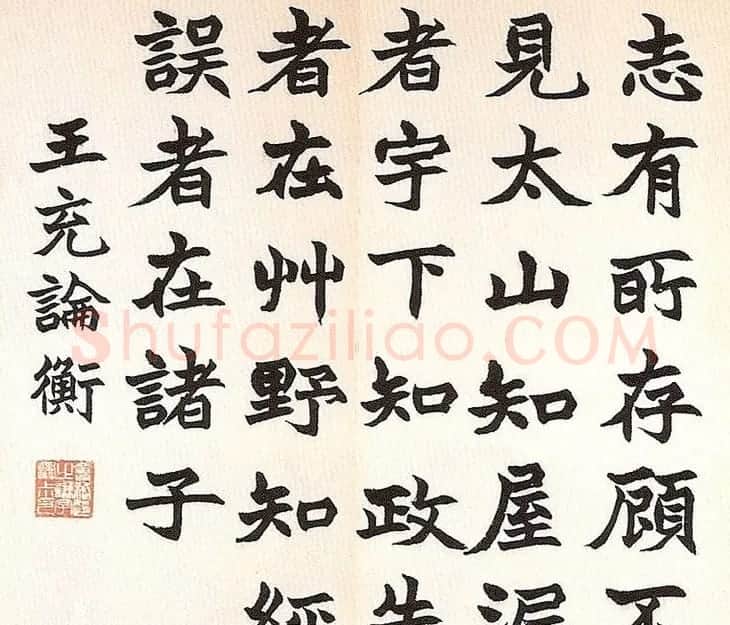 志有所存顧不
見太山知屋漏
者宇下知政失
者在艸野知經
誤者在諸子
王充論衡
Shufaziliao.COM